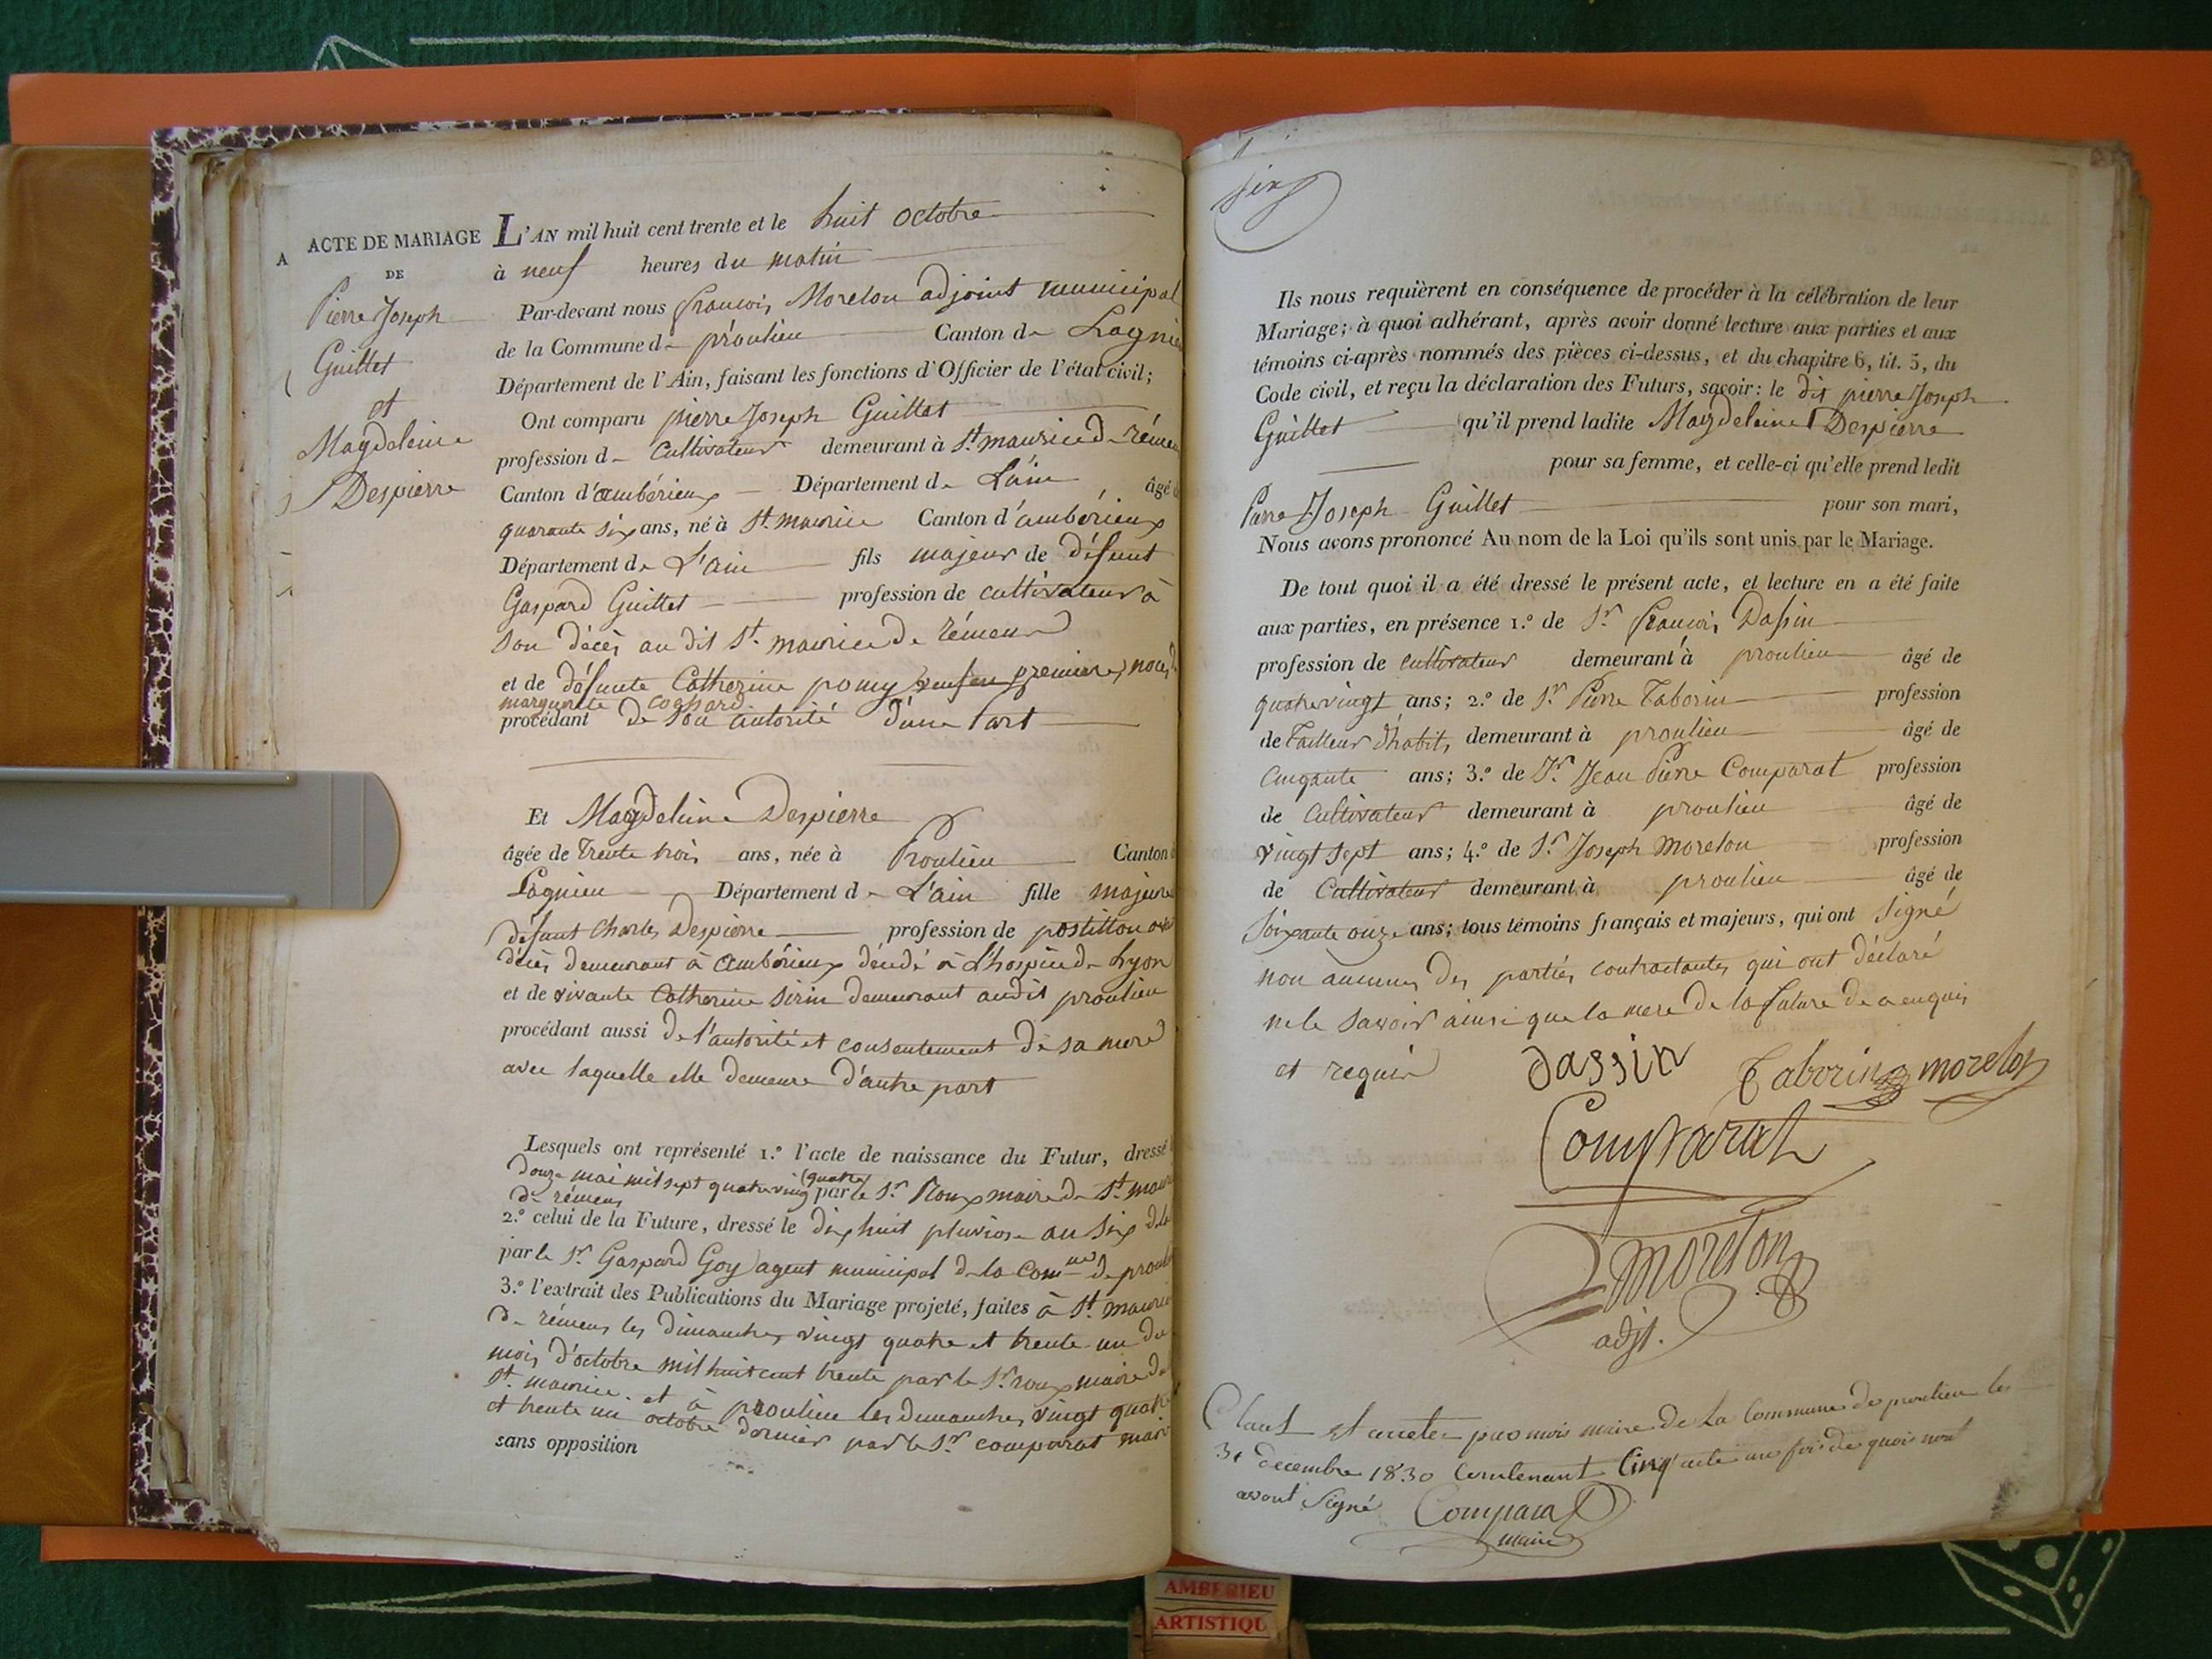 A ACTE DE MARIAGE
DE
Pierre Joseph
Guillet
et
Magdeleine
Despierre
L'AN mil huit cent trente et le huit octobre
à neuf heures du matin
Par-devant nous francois Morelon adjoint municipal
de la Commune de proulieu Canton de Lagnieu
Département de l'Ain, faisant les fonctions d'Officier de l'état civil;
Ont comparu pierre Joseph Guillet
profession de Cultivateur demeurant à St. maurice de rémens
Canton d'ambérieux Département de L'ain, âgé de
quarante six ans, né à St. maurice Canton d'ambérieux
Département de L'ain fils majeur de défunt
Gaspard Guillet profession de cultivateur à
son décès au dit St. maurice de rémens
et de défunte Catherine pomy premieres noces
marguerite cognard
procédant de son autorité d'une part
Et Magdeleine Despierre
âgée de Trente trois ans, née à Proulieu Canton de
Lagnieu Département de L'ain fille majeure
défunt Charles Despierre profession de postillon
décès demeurant à ambérieux décédé à l'hospice de Lyon
et de vivante Catherine Sirin demeurant audit proulieu
procédant aussi de l'autorité et consentement de sa mere
avec laquelle elle demeure d'autre part
Lesquels ont représenté 1.º l'acte de naissance du Futur, dressé
douze mai mil sept quatre ving (quatre) par le Sr. Roux maire de St. maurice
de rémens
2.º celui de la Future, dressé le dix huit pluviose an six
par le Sr. Gaspard Goy agent municipal de la Comne de proulieu
3.º l'extrait des Publications du Mariage projeté, faites à St. maurice
de rémens les dimanches vingt quatre et trente un du
mois d'octobre mil huit cent trente par le Sr. roux maire de
St. maurice. et à proulieu les dimanches vingt quatre
et trente un octobre dernier par le Sr. comparat maire
sans opposition
six
Ils nous requièrent en conséquence de procéder à la célébration de leur
Mariage; à quoi adhérant, après avoir donné lecture aux parties et aux
témoins ci-après nommés des pièces ci-dessus, et du chapitre 6, tit. 5, du
Code civil, et reçu la déclaration des Futurs, savoir: le dit pierre Joseph
Guillet qu'il prend ladite Magdeleine Despierre
pour sa femme, et celle-ci qu'elle prend ledit
Pierre Joseph Guillet pour son mari,
Nous avons prononcé Au nom de la Loi qu'ils sont unis par le Mariage.
De tout quoi il a été dressé le présent acte, et lecture en a été faite
aux parties, en présence 1.º de Sr. francois Dassin
profession de cultivateur demeurant à proulieu âgé de
quatrevingt ans; 2.º de Sr. Pierre Taborin profession
de Tailleur d'habits demeurant à proulieu âgé de
Cinqante ans; 3.º de Sr. Jean Pierre Comparat profession
de Cultivateur demeurant à proulieu âgé de
vingt sept ans; 4.º de Sr. Joseph morelon profession
de Cultivateur demeurant à proulieu âgé de
Soixante onze ans; tous témoins français et majeurs, qui ont signé
non aucunes des parties contractantes qui ont déclaré
ne le savoir ainsi que la mere de la future de ce enquis
et requis
dassin Taborin morelon
Comparat
morelon
adjt.
Claut et arretée par nous maire de La Commune de proulieu les
31 decembre 1830 Contenant Cinq acte une foi de quoi nous
avont Signé Comparat
maire
AMBERIEU
ARTISTIQU